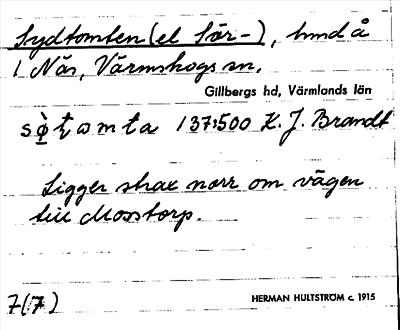 Sydtomten (el Sör-), hmd å
1 Näs, Värmskogs sn.
Gillbergs hd, Värmlands län
137:500 K. J. Brandt
Ligger strax norr om vägen
till Mosstorp.
7(7)
HERMAN HULTSTRÖM c. 1915